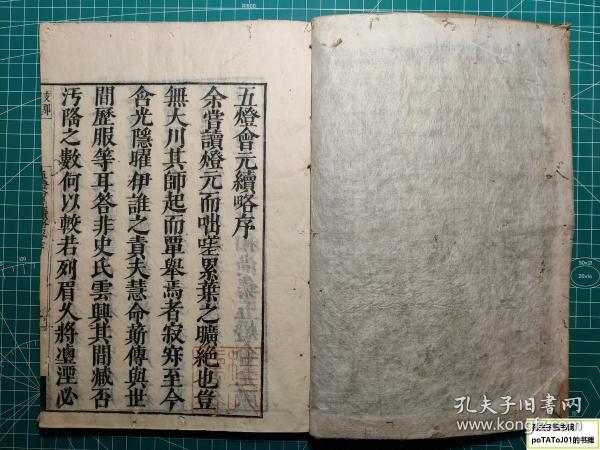 五燈會元續略序
余嘗讀燈元而咄嗟累葉之曠絕也豈
無大川其師起而單舉焉者寂寂至今
含光隱曜伊誰之責夫慧命薪傳與世
間歷服等耳咎非史氏雲興其間臧否
汚隆之數何以較若列眉久將堙湮必
孔夫子旧书网
poTATOJ01的书摊